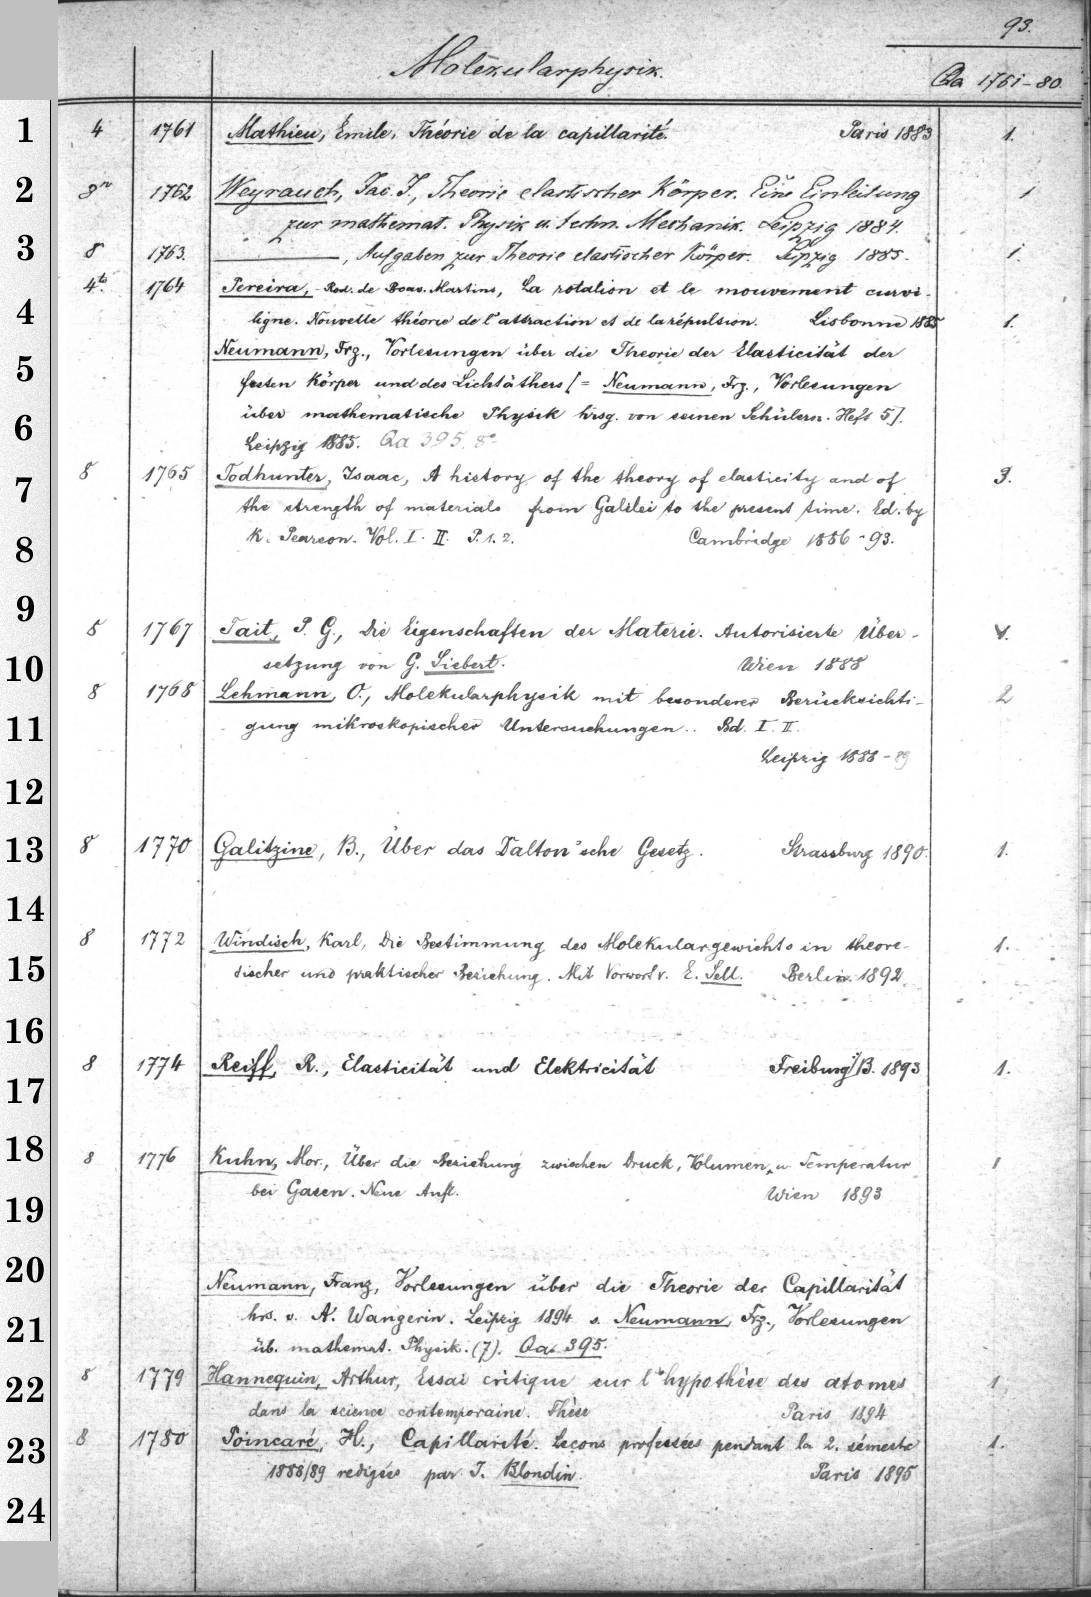 93.
Molekularphysik.
Qa 1761-80.
1 4 1761 Mathieu, Émile, Théorie de la capillarité. Paris 1883 1.
2 8vo 1762 Weyrauch, Jac. J., Theorie elastischer Körper. Eine Einleitung 1
zur mathemat. Physik u. techn. Mechanik. Leipzig 1884.
3 8 1763. ———, Aufgaben zur Theorie elastischer Körper. Leipzig 1885. 1.
4to 1764 Pereira, Rod. de Boav. Martins, La rotation et le mouvement curvi-
4 ligne. Nouvelle théorie de l'attraction et de la répulsion. Lisbonne 1885 1.
Neumann, Frz., Vorlesungen über die Theorie der Elasticität der
5 festen Körper und des Lichtäthers [= Neumann, Frz., Vorlesungen
6 über mathematische Physik hrsg. von seinen Schülern. Heft 5].
Leipzig 1885. Qa 395. 8o
7 8 1765 Todhunter, Isaac, A history of the theory of elasticity and of 3.
the strength of materials from Galilei to the present time. Ed. by
8 K. Pearson. Vol. I. II. P. 1. 2. Cambridge 1886-93.
9
8 1767 Tait, P. G., Die Eigenschaften der Materie. Autorisierte Über- 1.
10 setzung von G. Siebert. Wien 1888
8 1768 Lehmann, O., Molekularphysik mit besonderer Berücksichti- 2
11 gung mikroskopischer Untersuchungen.. Bd. I. II.
Leipzig 1888-89
12
13 8 1770 Galitzine, B., Über das Dalton'sche Gesetz. Strassburg 1890. 1.
14
8 1772 Windisch, Karl, Die Bestimmung des Molekulargewichts in theore- 1.
15 tischer und praktischer Beziehung. Mit Vorwort v. E. Sell. Berlin 1892.
16
8 1774 Reiff, R., Elasticität und Elektricität Freiburg i/B. 1893 1.
17
18 8 1776 Kuhn, Mor., Über die Beziehung zwischen Druck, Volumen, u Temperatur 1
19 bei Gasen. Neue Aufl. Wien 1893
20
Neumann, Franz, Vorlesungen über die Theorie der Capillarität
21 hrs. v. A. Wangerin. Leipzig 1894 s. Neumann, Frz., Vorlesungen
üb. mathemat. Physik. (7). Qa 395.
22 8 1779 Hannequin, Arthur, Essai critique sur l'hypothèse des atomes 1
dans la science contemporaine. Thèse Paris 1894
23 8 1780 Poincaré, H., Capillarité. Leçons professées pendant la 2. semestre 1.
1888/89 redigées par J. Blondin. Paris 1895
24